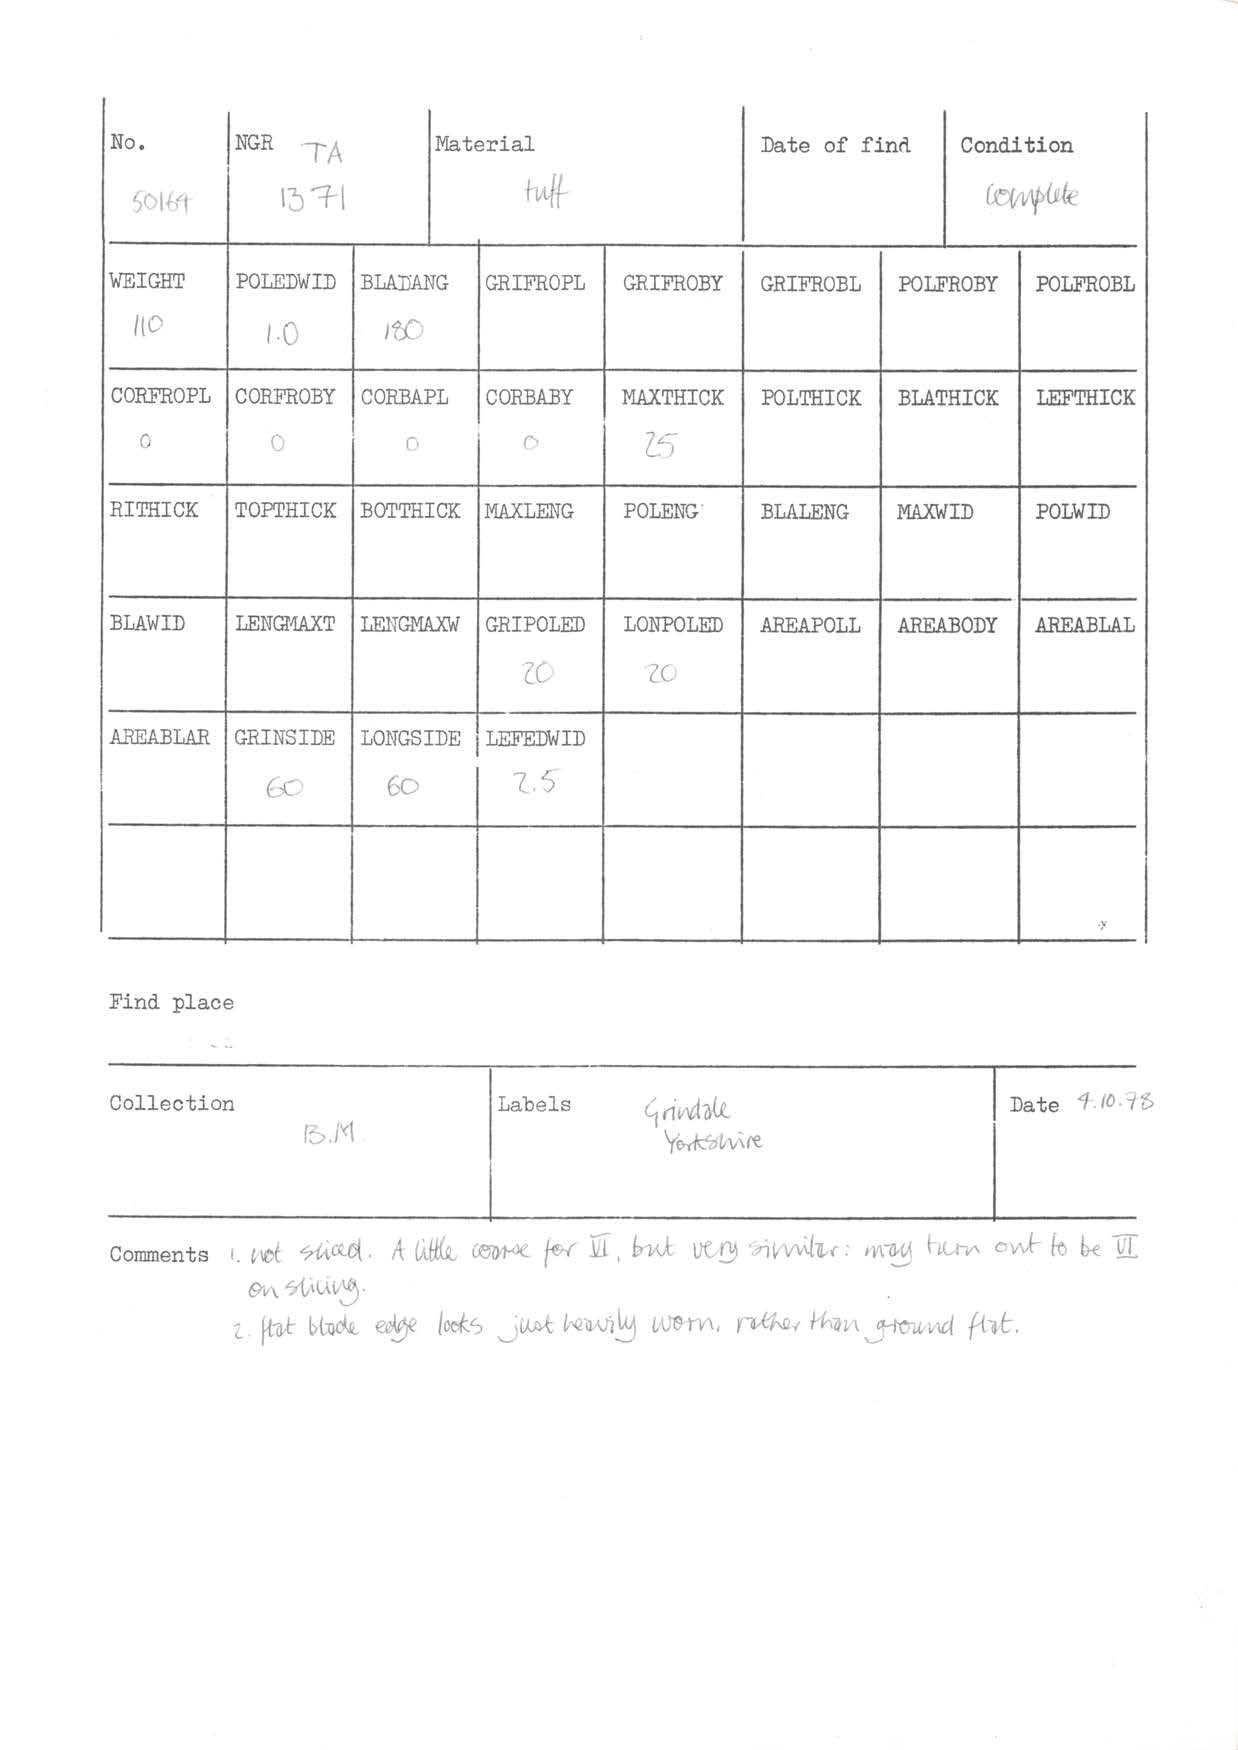 No. NGR TA Material Date of find Condition
50164 1371 tuff complete
WEIGHT POLEDWID BLADANG GRIFROPL GRIFROBY GRIFROBL POLFROBY POLFROBL
110 1.0 180
CORFROPL CORFROBY CORBAPL CORBABY MAXTHICK POLTHICK BLATHICK LEFTHICK
0 0 0 0 25
RITHICK TOPTHICK BOTTHICK MAXLENG POLENG BLALENG MAXWID POLWID
BLAWID LENGMAXT LENGMAXW GRIPOLED LONPOLED AREAPOLL AREABODY AREABLAL
20 20
AREABLAR GRINSIDE LONGSIDE LEFEDWID
60 60 2.5
Find place
Collection Labels Grindale Date 4.10.78
B.M. Yorkshire
Comments 1. not sliced. A little coarse for VI, but very similar: may turn out to be VI
on slicing.
2. flat blade edge looks just heavily worn, rather than ground flat.